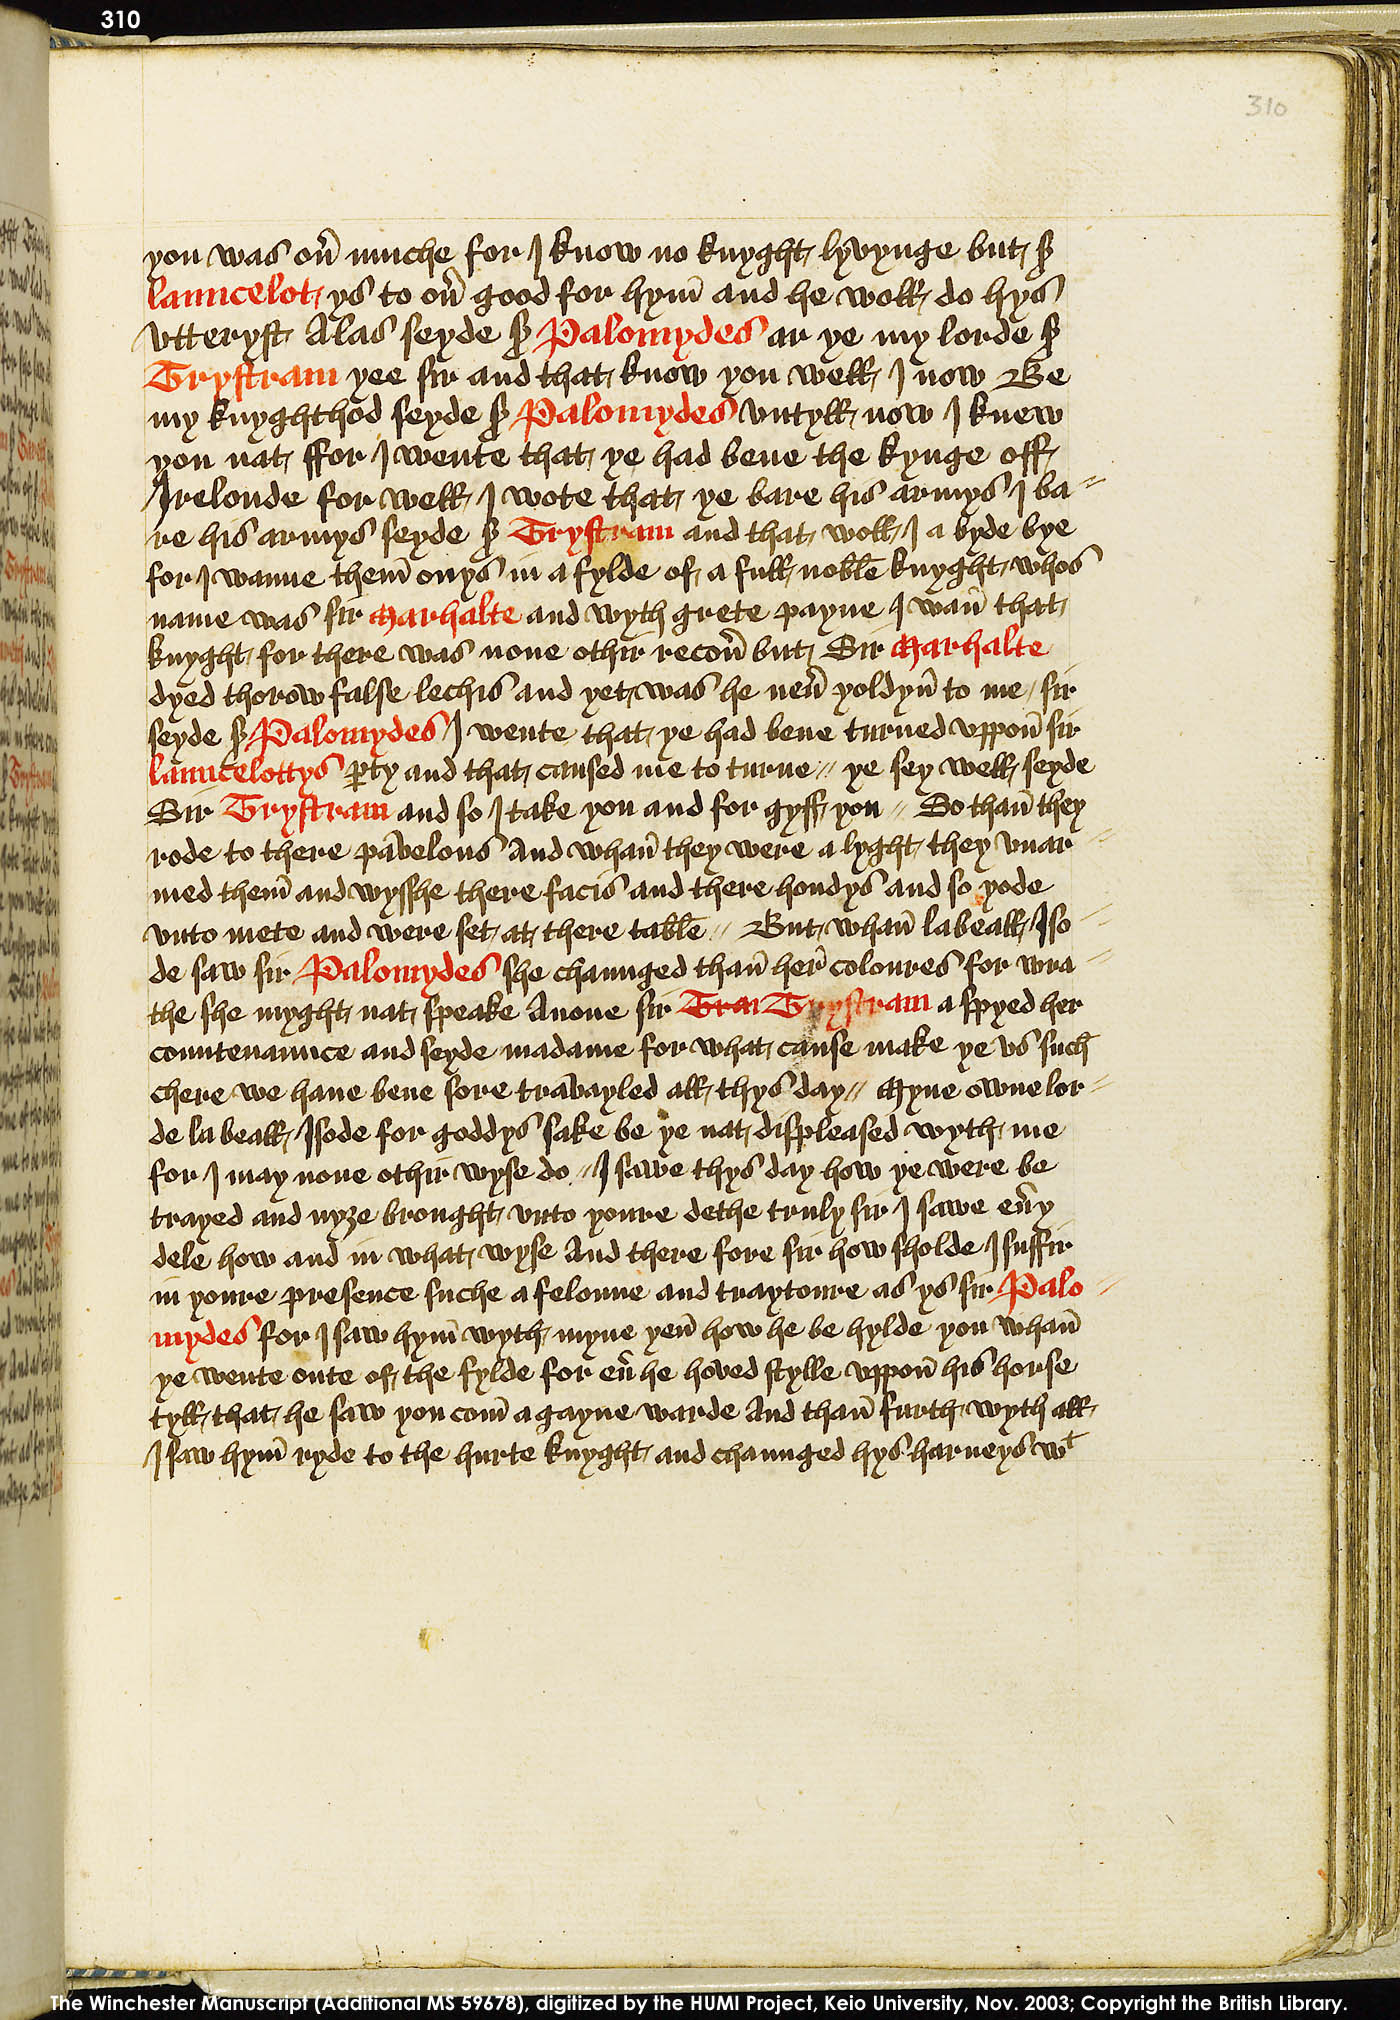 310
310
you was oũ muche for I know no knyght lyvynge but sͬ
launcelot ys to oũ good for hym̄ and he woll do hys
vtteryst Alas seyde sͬ Palomydes ar ye my lorde sͬ
Trystram yee sir and that know you well I now Be
my knyghthod seyde sͬ Palomydes vntyll now I knew
you nat ffor I wente that ye had bene the kynge off
Irelonde for well I wote that ye bare his armys I ba⸗
re his armys seyde sͬ Trystram and that woll I a byde bye
for I wanne them̄ onys in a fylde of a full noble knyght whos
name was sir Marhalte and wyth grete payne I wan̄ that
knyght for there was none othir recoũ but Sir Marhalte
dyed thorow false lechis and yet was he neũ yoldyn̄ to me / sir
seyde sͬ Palomydes I wente that ye had bene turned vppon̄ sir
launcelottys ꝑty and that caused me to turne // ye sey well seyde
Sir Trystram and so I take you and for gyff you // So than̄ they
rode to there pavelons And whan̄ they were a lyght they vnar⸗
med them̄ and wysshe there facis and there hondys and so yode
vnto mete and were set at there table // But whan̄ la beall Iso⸗
de saw sir Palomydes she chaunged than̄ her coloures for wra⸗
the she myght nat speake Anone sir Tra Trystram a spyed her
countenaunce and seyde madame for what cause make ye vs such
chere we haue bene sore travayled all thys day // Myne owne lor⸗
de la beall Isode for goddys sake be ye nat displeased wyth me
for I may none othir wyse do // I sawe thys day how ye were be
trayed and nyȝe brought vnto youre dethe truly sir I sawe eũy
dele how and in what wyse And there fore sir how sholde I suffir
in youre presence suche a felonne and traytoure as ys sir Palo⸗
mydes for I saw hym̄ wyth myne yen̄ how he be hylde you whan̄
ye wente oute of the fylde for eũ he hoved stylle vppon̄ his horse
tyll that he saw you com̄ a gayne warde And than̄ furth wyth all
I saw hym̄ ryde to the hurte knyght and chaunged hys harneys wᵗ
The Winchester Manuscript (Additional MS 59678), digitized by the HUMI Project, Keio University, Nov. 2003; Copyright the British Library.